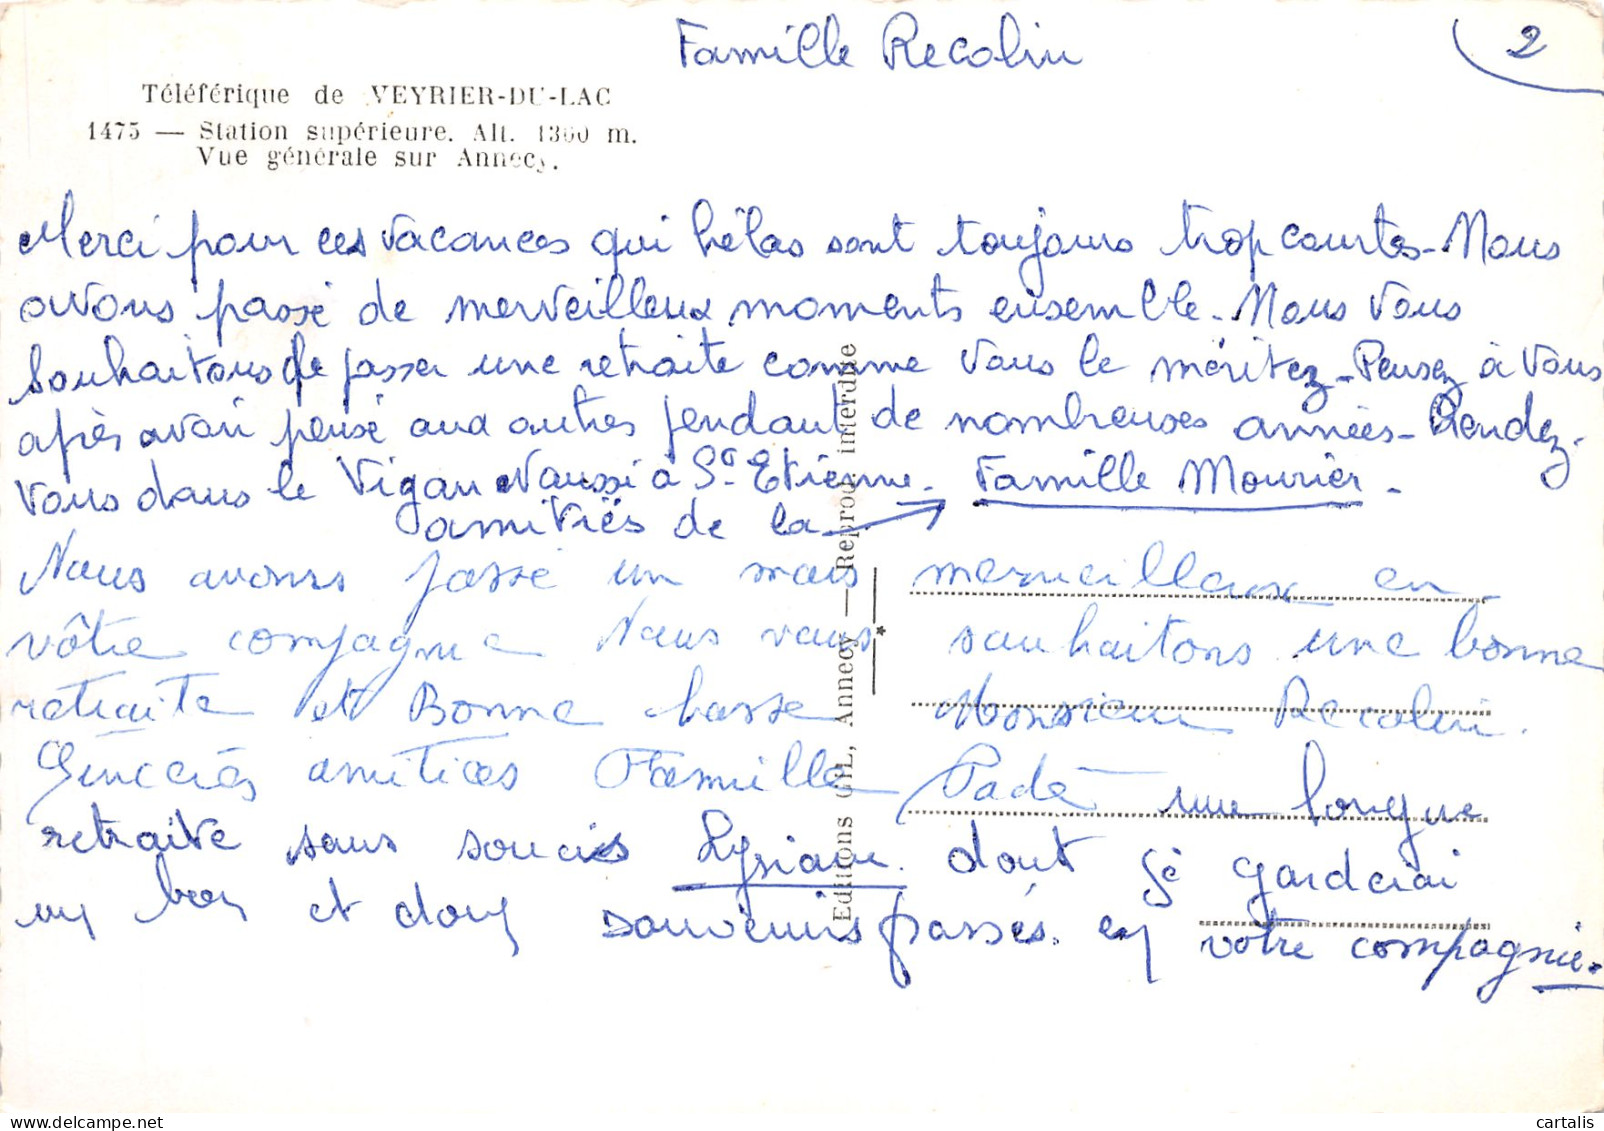 Famille Recolin
2
Téléférique de VEYRIER-DU-LAC
1475 — Station supérieure. Alt. 1300 m.
Vue générale sur Annecy.
Merci pour ces vacances qui hélas sont toujours trop courtes - Nous
avons passé de merveilleux moments ensemble. Nous vous
souhaitons de passer une retraite comme vous le méritez - Pensez à vous
après avoir pensé aux autres pendant de nombreuses années - Rendez-
vous dans le Vigan aussi à St Etienne. Famille Mourier -
amitiés de la
Nous avons passé un mois merveilleux en
vôtre compagnie Nous vous souhaitons une bonne
retraite et Bonne chasse Monsieur Recolin.
Sincères amitiés Famille Padé une longue
retraite sans soucis Lysiane. dont je garderai
un bon et doux souvenirs passés en votre compagnie.
Editions GIL, Annecy — Reprod. interdite
cartalis